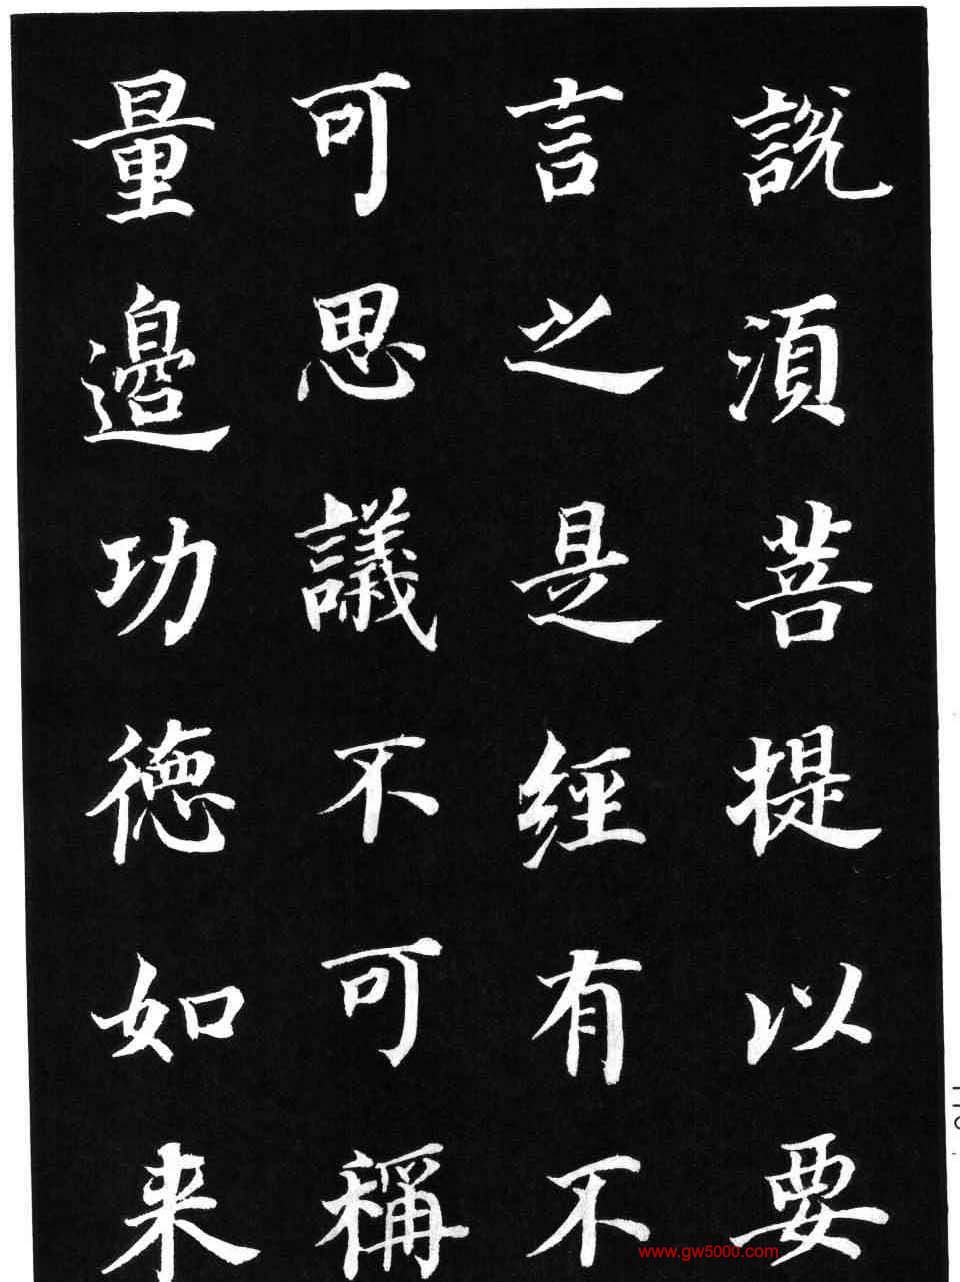 說湏菩提以要
言之是經有不
可思議不可稱
量邊功德如来
www.gw5000.com